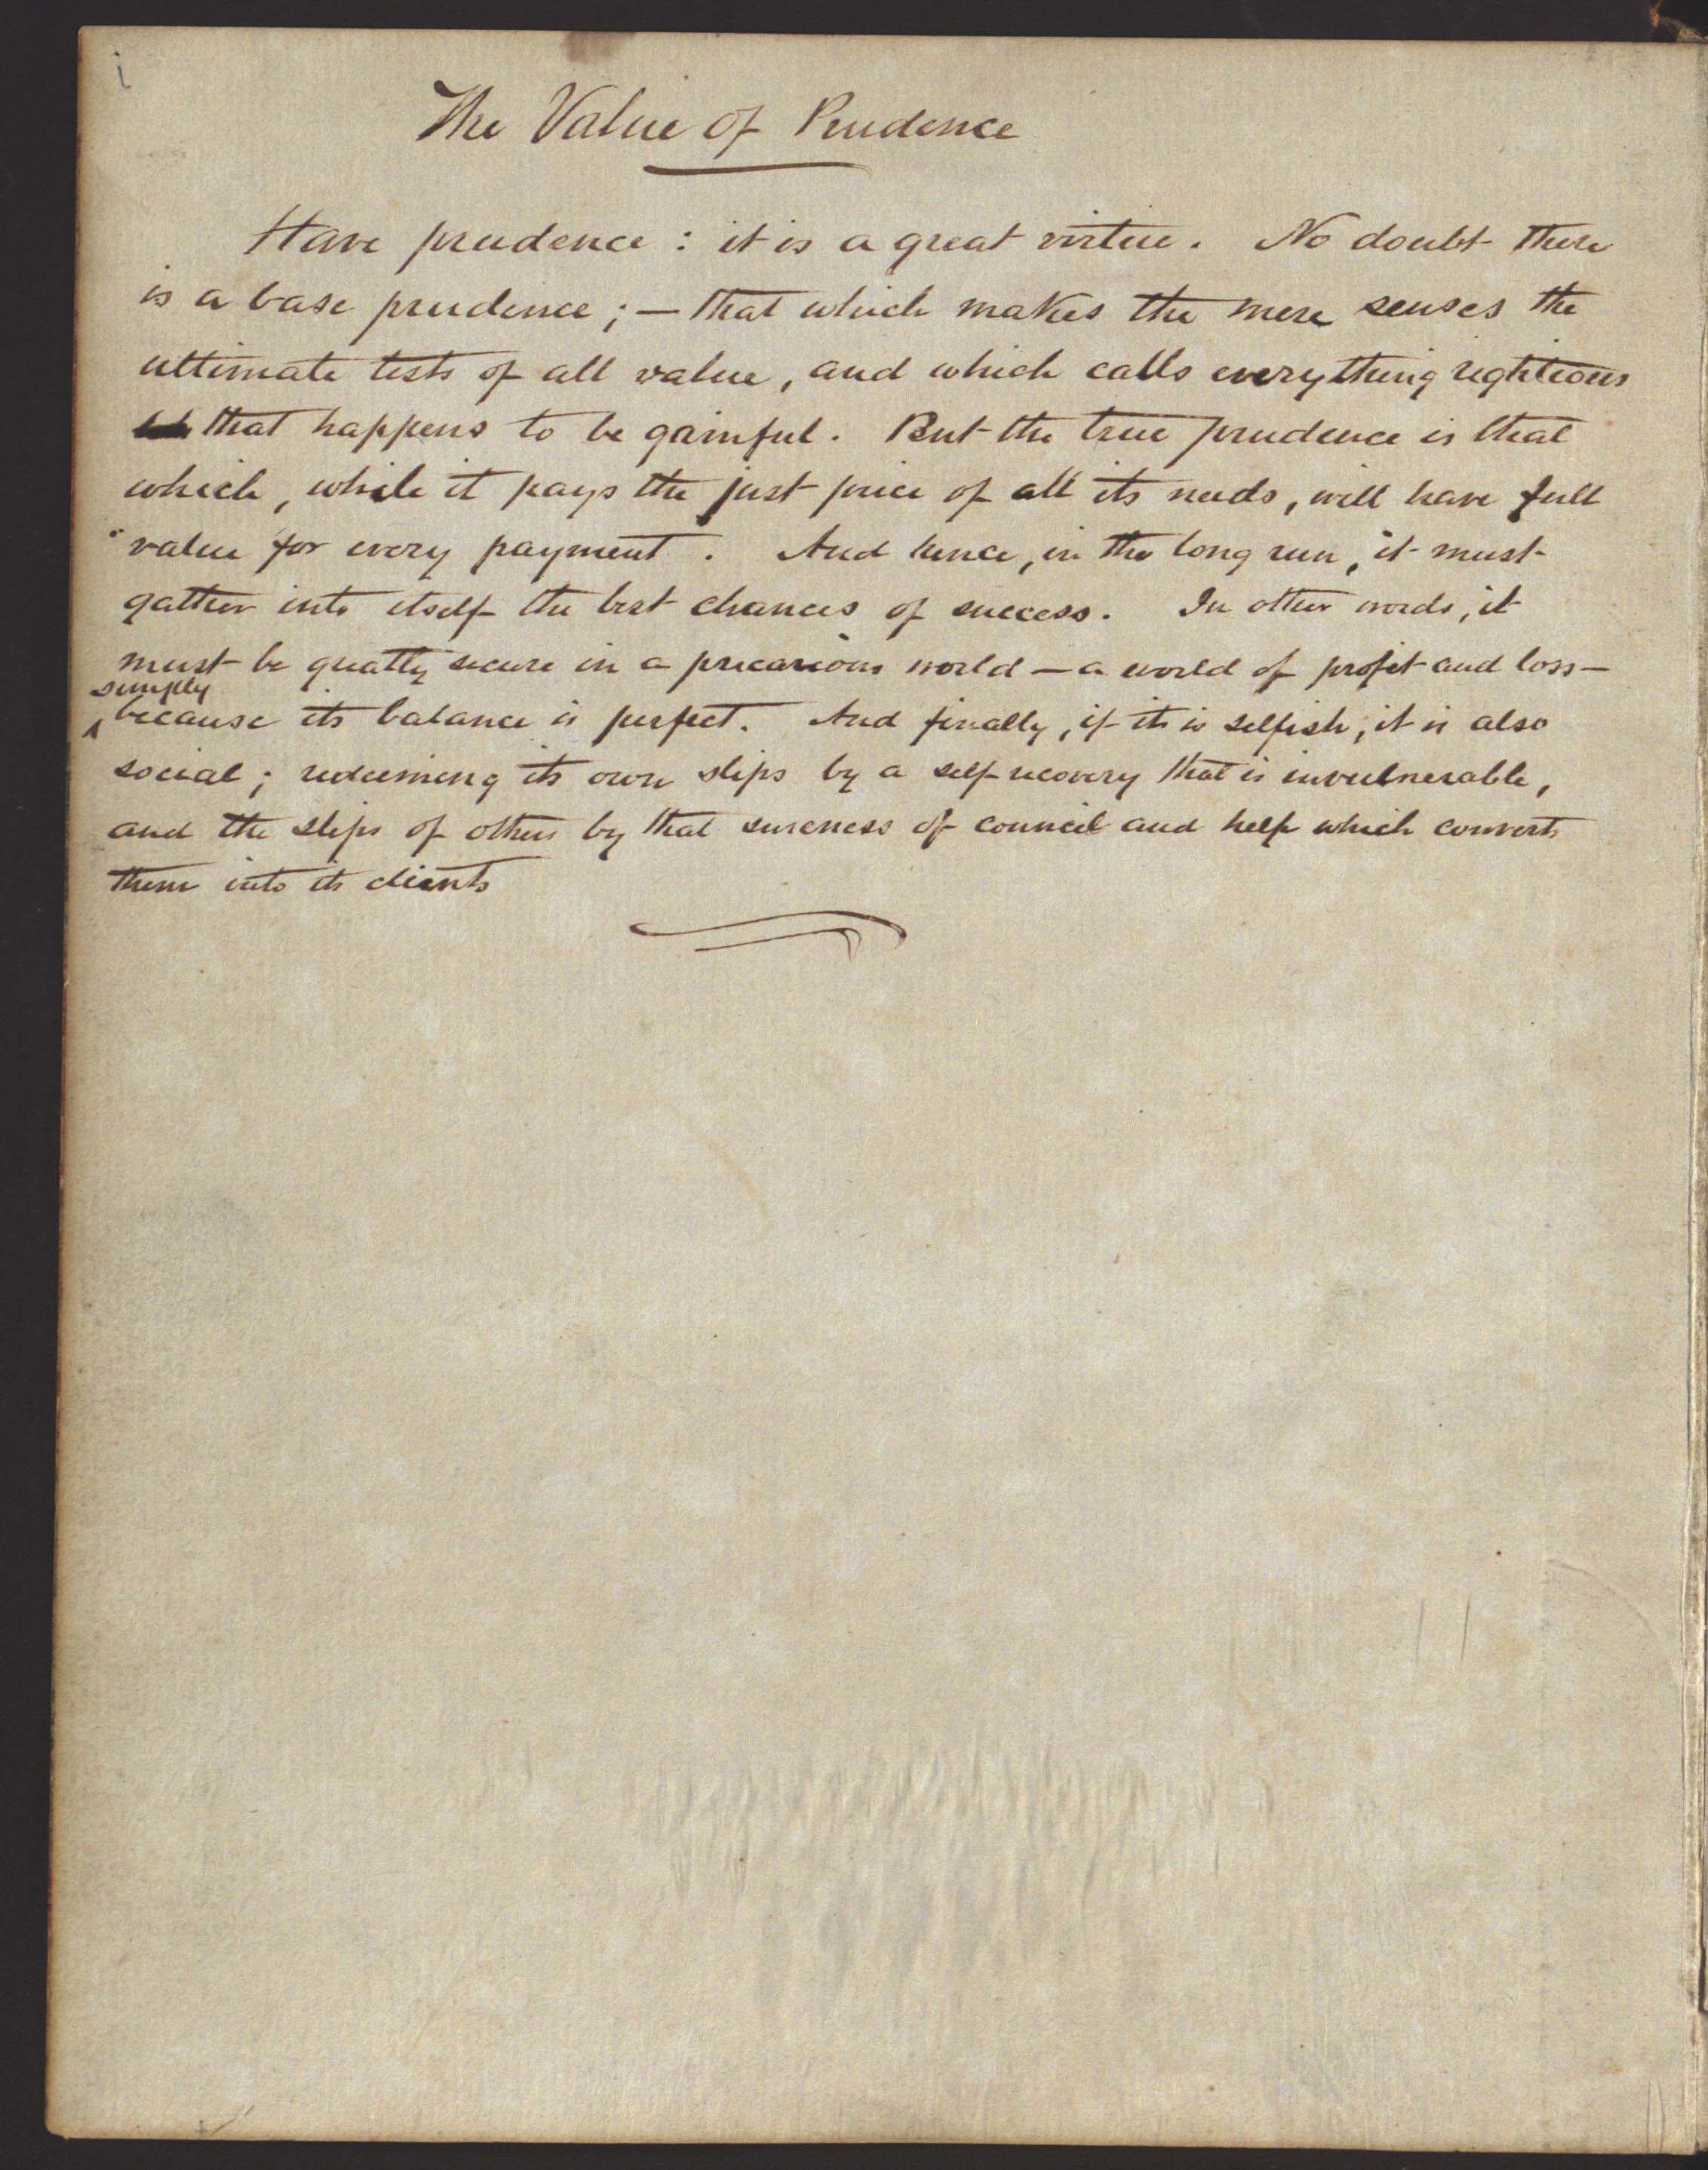 i
The Value of Prudence
Have prudence : it is a great virtue. No doubt there
is a base prudence ; — that which makes the mere senses the
ultimate tests of all value, and which calls everything righteous
that happens to be gainful. But the true prudence is that
which, while it pays the just price of all its needs, will have full
value for every payment. And hence, in the long run, it must
gather into itself the best chances of success. In other words, it
must be greatly secure in a precarious world — a world of profit and loss —
simply
because its balance is perfect. And finally, if it is selfish, it is also
social ; redeeming its own slips by a self-recovery that is invulnerable,
and the slips of others by that sureness of council and help which converts
them into its clients